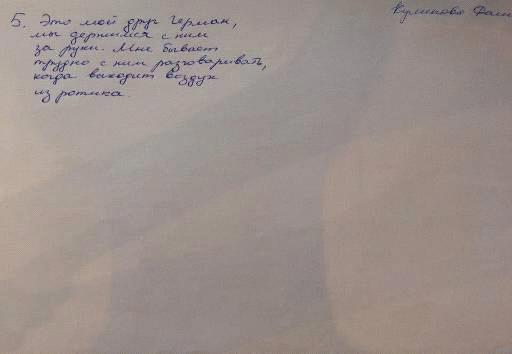 Куликова
5. Это мой друг Герман,
мы держимся с ним
за руки. Мне бывает
трудно с ним разговаривать,
когда выходит воздух
из ротика.